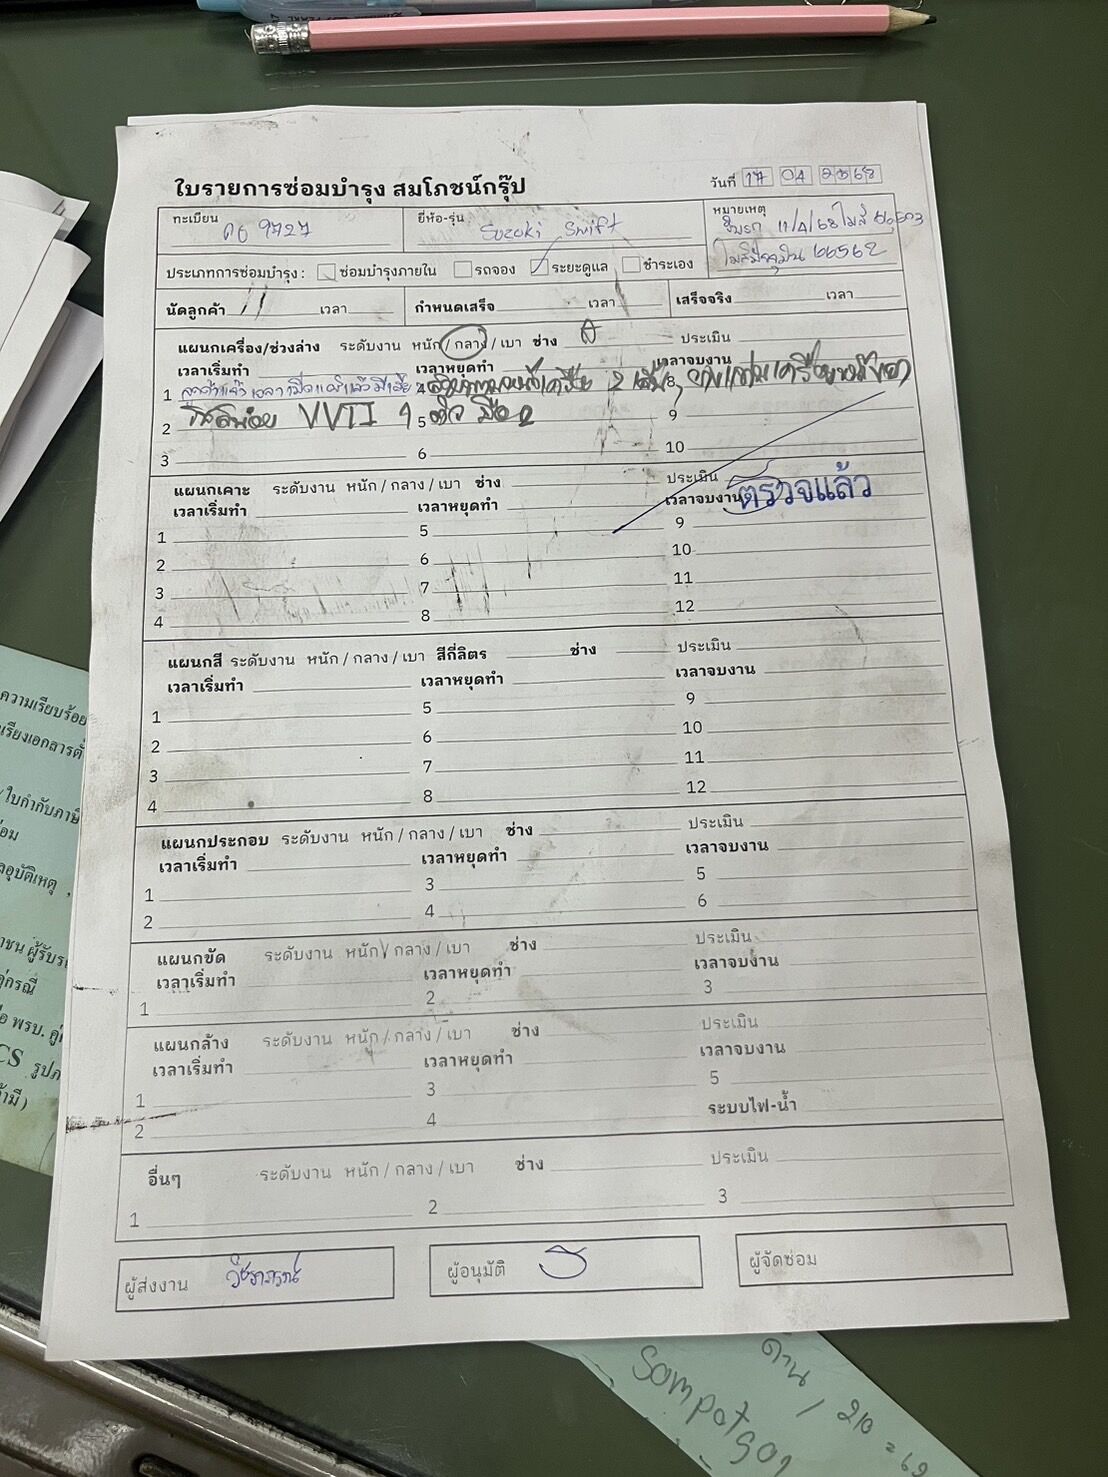 ใบรายการซ่อมบำรุง สมโภชน์กรุ๊ป
วันที่ 17 04 2568
ทะเบียน 9727
ยี่ห้อ-รุ่น Suzuki Swift
หมายเหตุ
รับรถ 11/4/68 ไมล์
ไมล์ปัจจุบัน 66562
ประเภทการซ่อมบำรุง : ซ่อมบำรุงภายใน รถจอง ระยะดูแล ชำระเอง
นัดลูกค้า เวลา กำหนดเสร็จ เวลา เสร็จจริง เวลา
แผนกเครื่อง/ช่วงล่าง ระดับงาน หนัก / กลาง / เบา ช่าง A ประเมิน
เวลาเริ่มทำ เวลาหยุดทำ เวลาจบงาน
1 ลูกค้าแจ้ง เวลาเปิดแอร์แล้วมีเสียง 4 2 เส้น 8
2 VVTI 1 ตัว มือ 2 5 9
3 6 10
แผนกเคาะ ระดับงาน หนัก / กลาง / เบา ช่าง ประเมิน
เวลาเริ่มทำ เวลาหยุดทำ เวลาจบงาน ตรวจแล้ว
1 5 9
2 6 10
3 7 11
4 8 12
แผนกสี ระดับงาน หนัก / กลาง / เบา สีกี่ลิตร ช่าง ประเมิน
เวลาเริ่มทำ เวลาหยุดทำ เวลาจบงาน
1 5 9
2 6 10
3 7 11
4 8 12
แผนกประกอบ ระดับงาน หนัก / กลาง / เบา ช่าง ประเมิน
เวลาเริ่มทำ เวลาหยุดทำ เวลาจบงาน
1 3 5
2 4 6
แผนกขัด ระดับงาน หนัก / กลาง / เบา ช่าง ประเมิน
เวลาเริ่มทำ เวลาหยุดทำ เวลาจบงาน
1 2 3
แผนกล้าง ระดับงาน หนัก / กลาง / เบา ช่าง ประเมิน
เวลาเริ่มทำ เวลาหยุดทำ เวลาจบงาน
1 3 5
2 4 ระบบไฟ-น้ำ
อื่นๆ ระดับงาน หนัก / กลาง / เบา ช่าง ประเมิน
1 2 3
ผู้ส่งงาน
ผู้อนุมัติ
ผู้จัดซ่อม
ความเรียบร้อย
เรียงเอกสาร
/ ใบกำกับภาษี
อุบัติเหตุ ,
ผู้รับ
คู่กรณี
พรบ.
CS